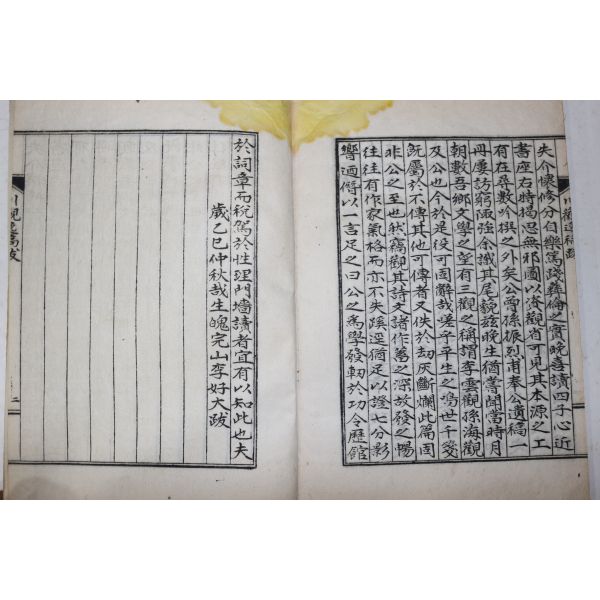 夫介懷修分自樂篤踐彛倫之實晩喜讀四子心近
書座右時揭思無邪圖以演觀省可見其本源之工
有在尋數吟撰之外矣公曾孫振烈甫奉公遺稿一
冊屢訪窮陋強余識其尾貌玆晩生猶嘗聞當時月
朝數吾鄉文學之望有三觀之稱謂李雲觀孫海觀
及公也今於是役可固辭哉嗟乎平生之鳴世千箋
旣屬於不傳其他可傳者又佚於劫灰斷爛此篇固
非公之至也然竊御其詩文諸作蓄之深故發之暢
往往有作家氣格而亦不失蹊逕猶足以證七分影
響迺僭以一言足之曰公之爲學發軔於功令歷館
於詞章而稅駕於性理門墻讀者宜有以知此也夫
歲乙巳仲秋哉生魄完山李好大跋
川觀遺稿跋
二